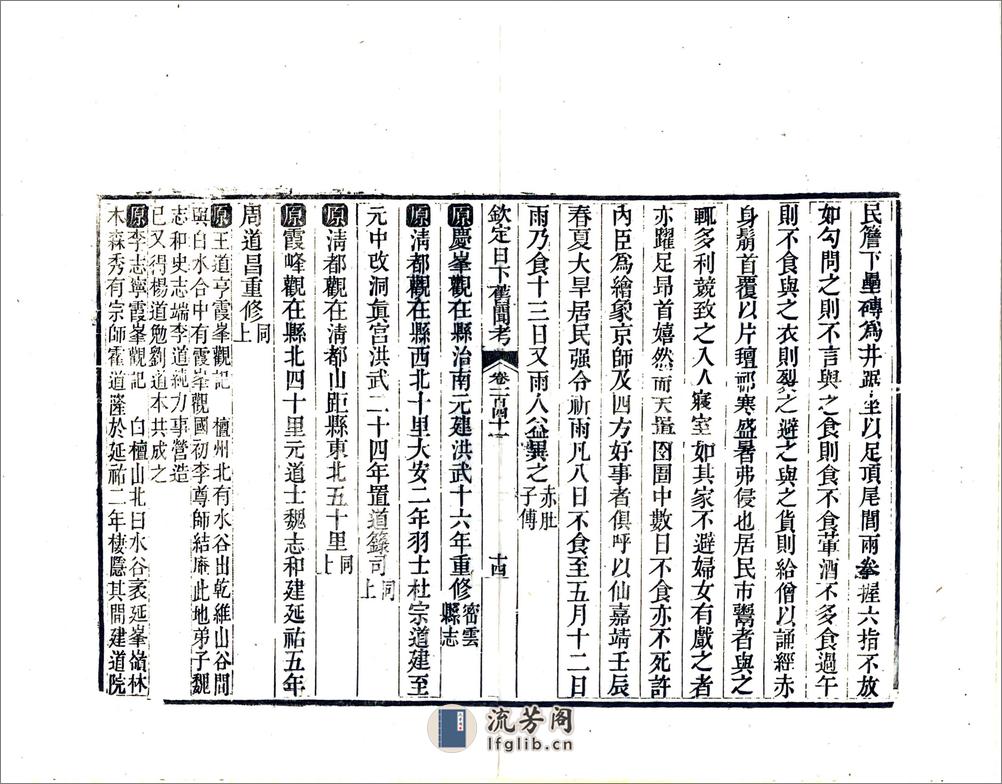 民簷下壘磚爲井跽坐以足頂尾閭兩拳握六指不放
如勾問之則不言與之食則食不食葷酒不多食過午
則不食與之衣則裂之避之與之貨則給僧以誦經赤
身鬅首覆以片氊祁寒盛暑弗侵也居民市鬻者與之
輒多利競致之入人寢室如其家不避婦女有戲之者
亦躍足昂首嬉然而天置囹圄中數日不食亦不死許
內臣爲繪象京師及四方好事者俱呼以仙嘉靖壬辰
春夏大旱居民强令祈雨凡八日不食至五月十二日
雨乃食十三日又雨人益異之赤肚子傳
欽定日下舊聞考 卷一百四十一 十四
原慶峯觀在縣治南元建洪武十六年重修密雲縣志
原淸都觀在縣西北十里大安二年羽士杜宗道建至
元中改洞眞宮洪武二十四年置道籙司同上
原淸都觀在淸都山距縣東北五十里同上
原霞峰觀在縣北四十里元道士魏志和建延祐五年
周道昌重修同上
原王道亨霞峯觀記 檀州北有水谷出乾維山谷間
與白水合中有霞峯觀國初李尊師結庵此地弟子魏
志和史志端李道純力事營造
已又得楊道勉劉道木共成之
原李志寧霞峯觀記 白檀山北曰水谷袤延峯嶺林
木森秀有宗師霍道隆於延祐二年棲隱其間建道院
流芳阁
lfglib.cn